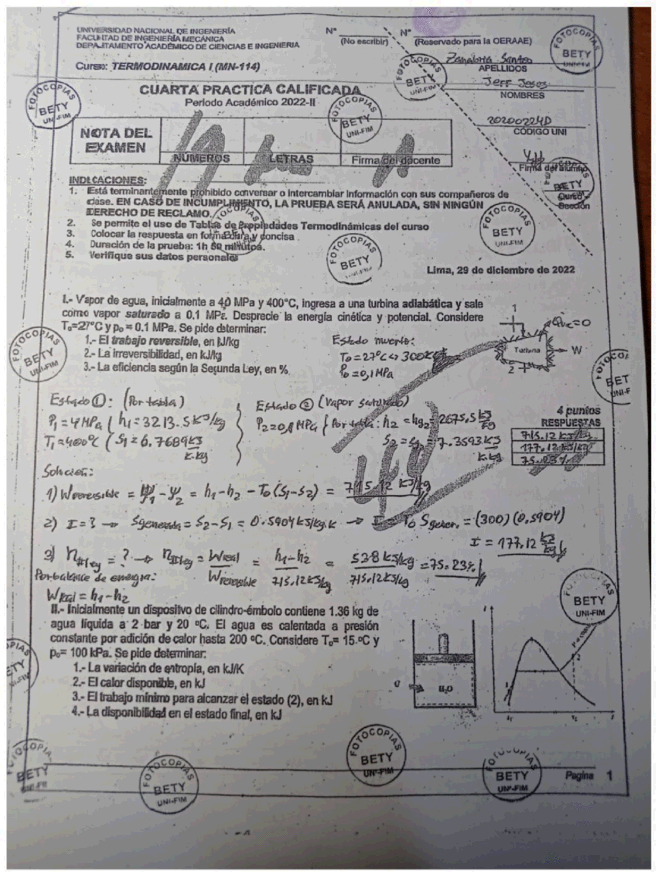 UNIVERSIDAD NACIONAL DE INGENIERÍA
FACULTAD DE INGENIERÍA MECÁNICA
DEPARTAMENTO ACADÉMICO DE CIENCIAS E INGENIERIA
Curso: TERMODINAMICA I (MN-114)
N°
(No escribir)
N°
(Reservado para la OERAAE)
APELLIDOS
Jeff Jesus
NOMBRES
20200224D
CODIGO UNI
Firma del alumno
Curso
Sección
CUARTA PRACTICA CALIFICADA
Período Académico 2022-II
NOTA DEL
EXAMEN
NUMEROS
LETRAS
Firma del docente
INDICACIONES:
1. Está terminantemente prohibido conversar o intercambiar información con sus compañeros de
clase. EN CASO DE INCUMPLIMIENTO, LA PRUEBA SERÁ ANULADA, SIN NINGÚN
DERECHO DE RECLAMO.
2. Se permite el uso de Tablas de Propiedades Termodinámicas del curso
3. Colocar la respuesta en forma clara y concisa
4. Duración de la prueba: 1h 50 minutos.
5. Verifique sus datos personales
Lima, 29 de diciembre de 2022
I.- Vapor de agua, inicialmente a 4,0 MPa y 400°C, ingresa a una turbina adiabática y sale
como vapor saturado a 0.1 MPa. Desprecie la energía cinética y potencial. Considere
T₀=27°C y p₀ = 0.1 MPa. Se pide determinar:
1.- El trabajo reversible, en kJ/kg
2.- La irreversibilidad, en kJ/kg
3.- La eficiencia según la Segunda Ley, en %
Estado muerto:
T₀ = 27°C <> 300K
P₀ = 0,1MPa
1
Qvc=0
Turbina
W
2
Estado ①: (Por tabla)
P₁ = 4 MPa { h₁ = 3213.5 kJ/kg
T₁ = 400°C { S₁ = 6.7689 kJ/K.kg
Estado ② (Vapor saturado)
P₂ = 0,1 MPa { Por tabla: h₂ = hg₂ = 2675,5 kJ/kg
S₂ = sg₂ = 7.3593 kJ/K.kg
4 puntos
RESPUESTAS
715.12 kJ/kg
177.12 kJ/kg
75.23%
Solución:
1) Wreversible = ψ₁ - ψ₂ = h₁-h₂ - T₀(S₁-S₂) = 715.12 kJ/kg
2) I = ? → Sgenerada = S₂-S₁ = 0.5904 kJ/kg.K → I = T₀ Sgener. = (300)(0.5904)
I = 177.12 kJ/kg
3) ηIIley = ? → ηIIley = Wreal/Wreversible = h₁-h₂/715.12 kJ/kg = 538 kJ/kg/715.12 kJ/kg = 75.23%
Por balance de energía:
Wreal = h₁-h₂
II.- Inicialmente un dispositivo de cilindro-émbolo contiene 1.36 kg de
agua líquida a 2 bar y 20 ºC. El agua es calentada a presión
constante por adición de calor hasta 200 ºC. Considere T₀= 15.ºC y
p₀= 100 kPa. Se pide determinar:
1.- La variación de entropía, en kJ/K
2.- El calor disponible, en kJ
3.- El trabajo mínimo para alcanzar el estado (2), en kJ
4.- La disponibilidad en el estado final, en kJ
H₂O
Pagina 1
FOTOCOPIAS
BETY
UNI-FIM
FOTOCOPIAS
BETY
UNI-FIM
FOTOCOPIAS
BETY
UNI-FIM